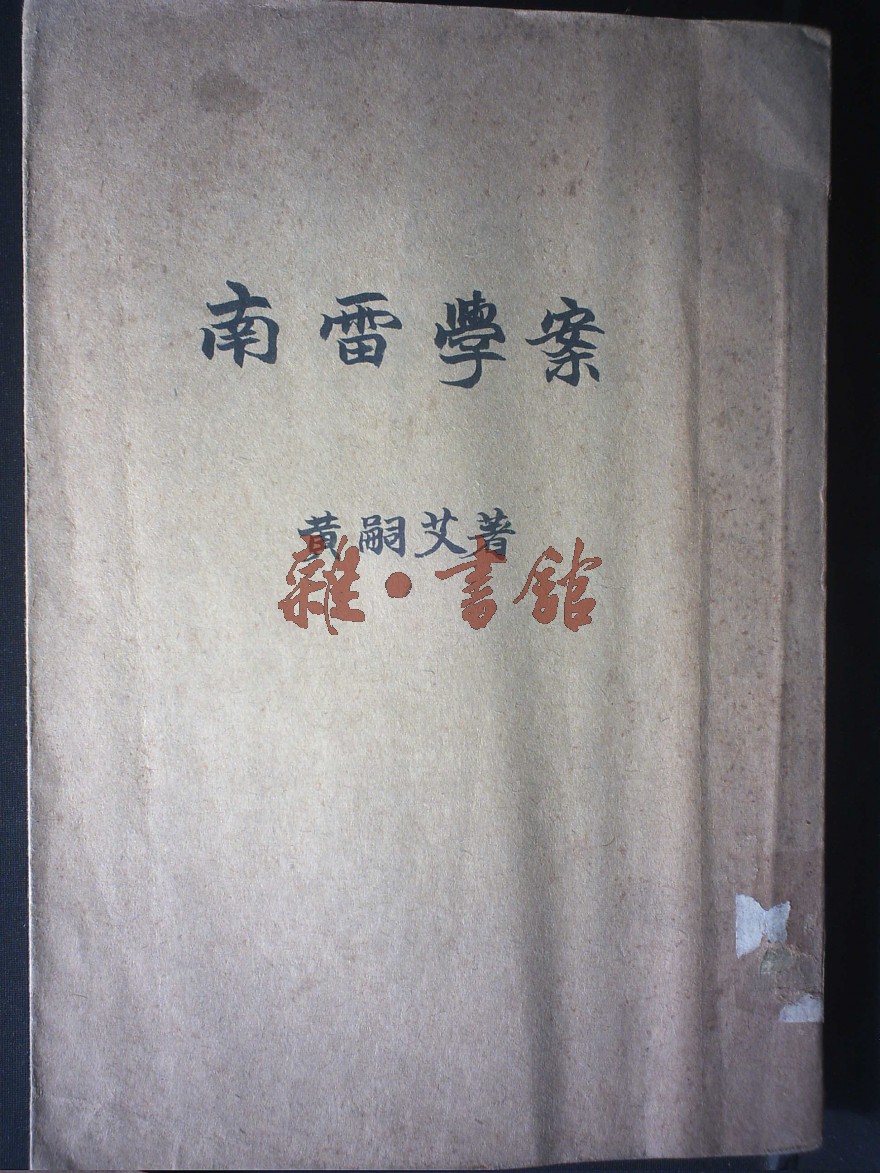 南雷學案
黄嗣艾著
雜·書館